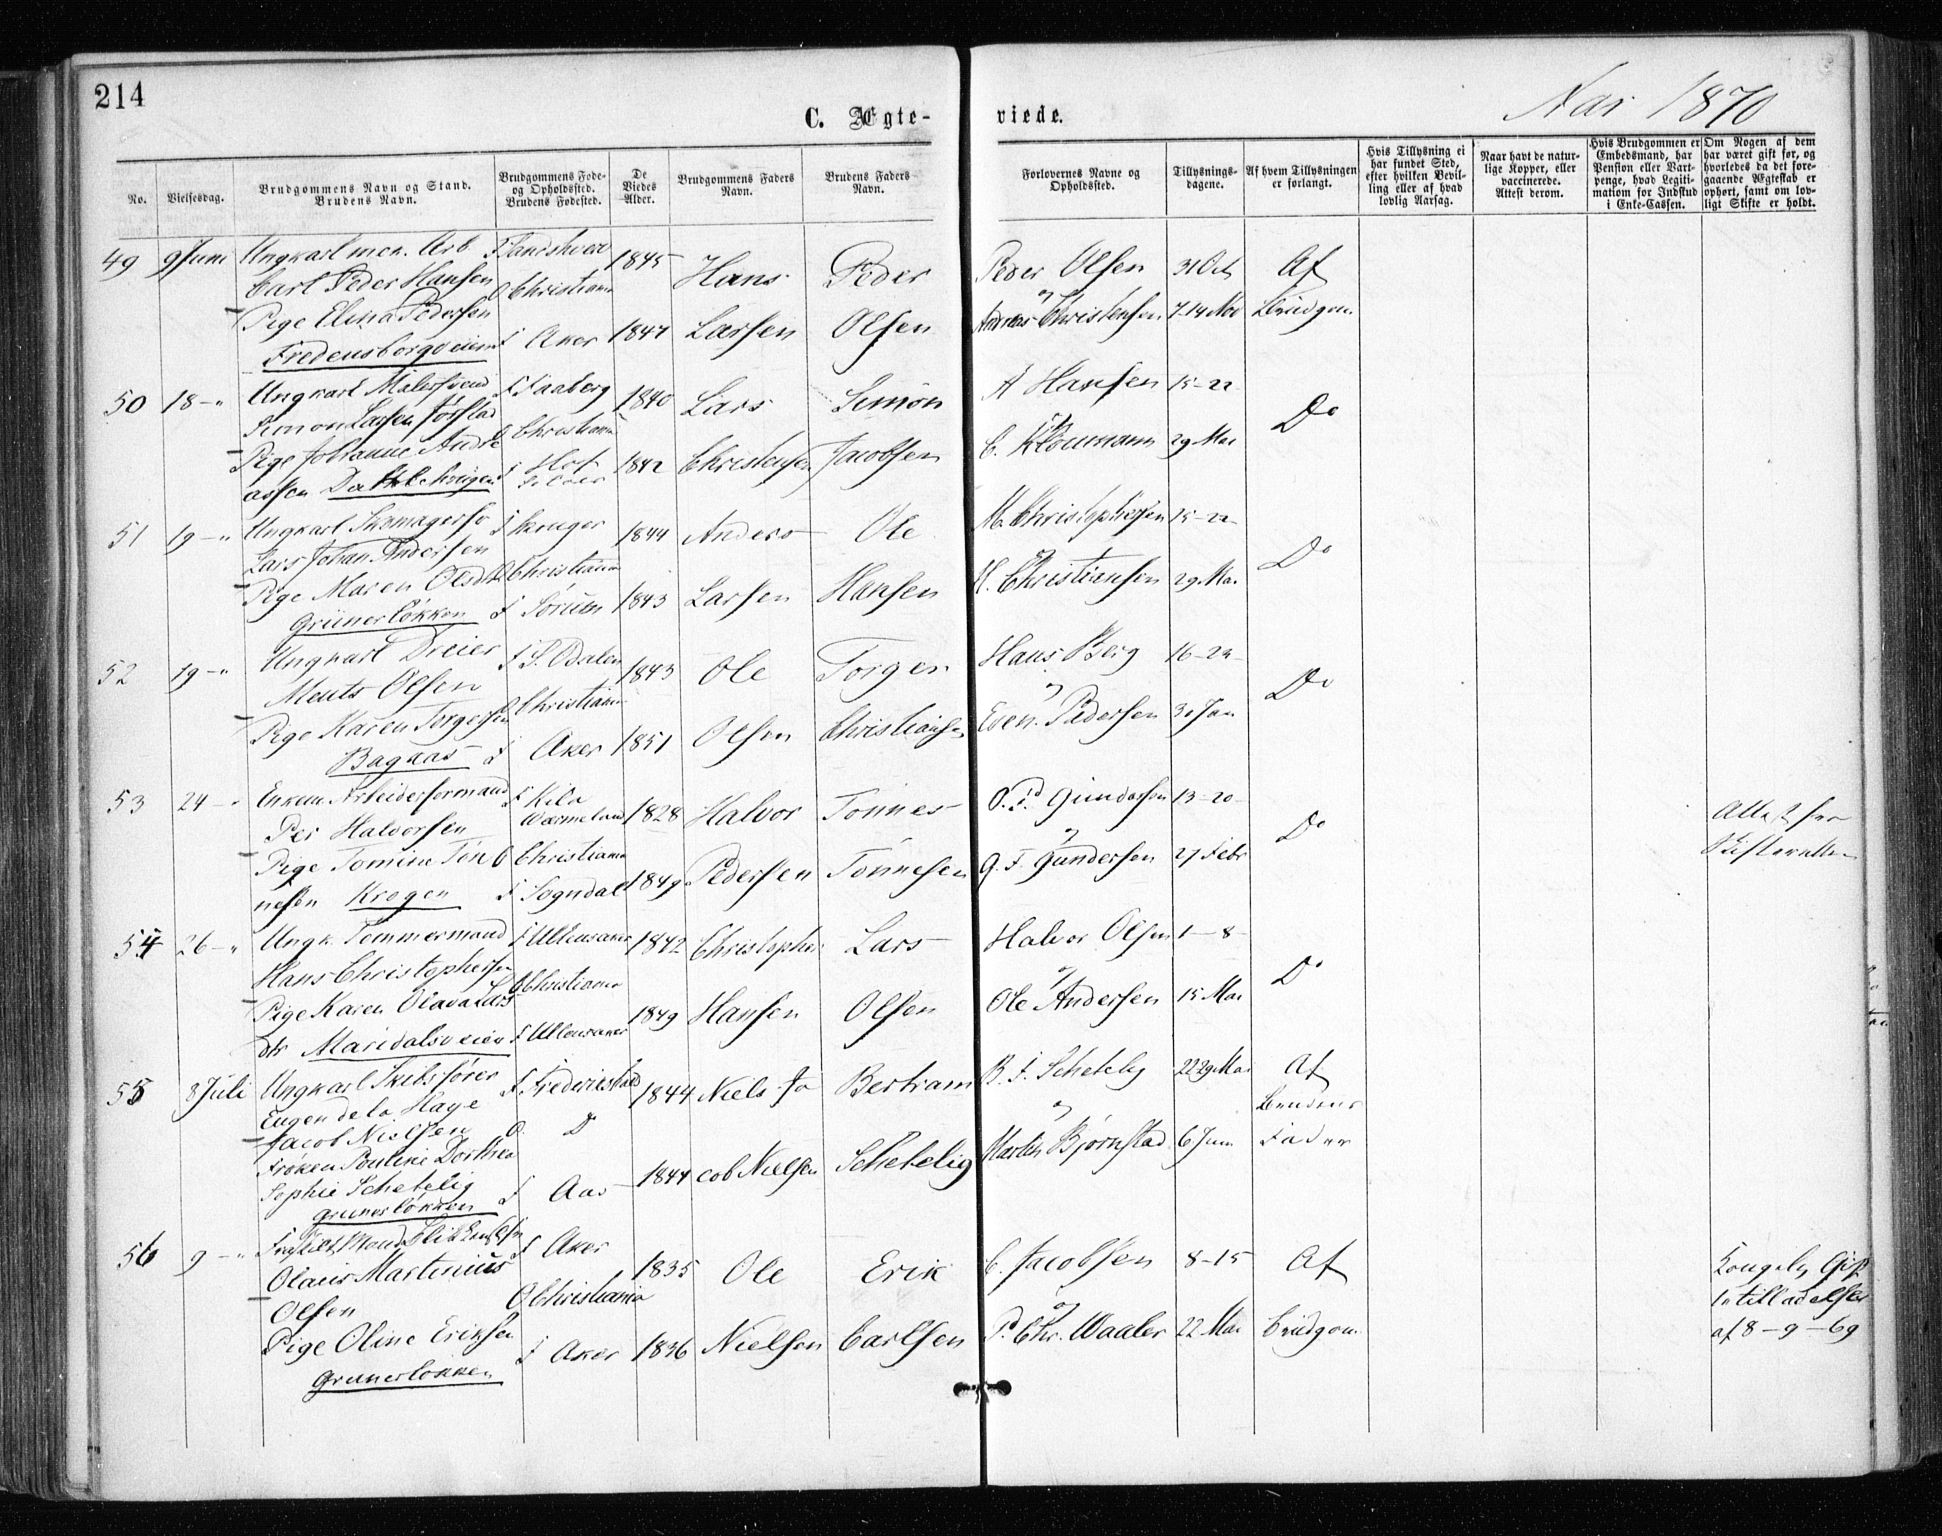 214
C. Ægte-
viede.
Aar 1870
No.
Vielsesdag.
Brudgommens Navn og Stand.
Brudens Navn.
Brudgommens Føde-
og Opholdssted.
Brudens Fødested.
De
Viedes
Alder.
Brudgommens Faders
Navn.
Brudens Faders
Navn.
Forlovernes Navne og
Opholdssted.
Tillysnings-
dagene.
Af hvem Tillysningen
er forlangt.
Hvis Tillysning ei
har fundet Sted,
efter hvilken Bevil-
ling eller af hvad
lovlig Aarsag.
Naar havt de natur-
lige Kopper, eller
vaccinerede.
Attest derom.
Hvis Brudgommen er
Embedsmand, har
Pension eller Vart-
penge, hvad Legiti-
mation for Indskud
i Enke-Cassen.
Om Nogen af dem
har været gift før, og
hvorledes da det fore-
gaaende Ægteskab er
ophørt, samt om lov-
ligt Skifte er holdt.
49 9 Juni Ungkarl Arb
Carl Peder Hansen
Pige Elina Pedersen
Fredensborgveien
Christiania
F Aker
1845
1847
Hans
Larsen
Peder
Olsen
Peder Olsen
og
Andreas Christensen
31 Oct
7.14 Nov
Af
Brudgom
50 18 - " Ungkarl Malersvend
Simon Larsen Jørstad
Pige Johanne Andre
assen Dahlehaugen
F Faaberg
Christiania
1840
1842
Lars
Christensen
Simon
Jacobsen
A Hansen
og
C. Kloumann
15-22
29 Mai
Do
51 19 - " Ungkarl Skomagersv
Lars Johan Andersen
Pige Maren Olsdtr
Grünerløkken
F
Christiania
F Sørum
1844
1843
Anders
Larsen
Ole
Hansen
M. Christophersen
og
H. Christiansen
15-22
29 Mai
Do
52 19 - " Ungkarl Dreier
Ments Olsen
Pige Karen Torgersen
Bagaas
F S. Odalen
O Christiania
F Aker
1843
1851
Ole
Olsen
Torger
Christiansen
Hans Berg
og
Even Pedersen
16-23
30 Jan
Do
53 24 - " Enkem Arbeidsformand
Per Halvorsen
Pige Tomine Tøn
nesen Krogen
F Kila
Wermeland
O Christiania
F Sogndal
1828
1849
Halvor
Pedersen
Tønnes
Tønnesen
Gundersen
og
G. F. Gundersen
13-20
27 Febr
Do
Att. fra
Skifteretten
54 26 - " Ungk. Tømmermand
Hans Christophersen
Pige Karen Olava Lars
dtr Maridalsveien
F Ullensaker
O Christiania
F Ullensaker
1842
1849
Christopher
Hansen
Lars
Olsen
Halvor Olsen
og
Ole Andersen
1-8-
15 Mai
Do
55 8 Juli Ungkarl Skibsfører
Eugen de la Haye
Jacob Nielsen
Frøken Pouline Dorthea
Sophie Schetelig
Grunerløkken
F Frederikstad
O Do
F Aas
1844
1844
Niels Ja
cob Nielsen
Bertram
Schetelig
B. F. Schetelig
og
Martin Bjørnstad
22 29 Mai
6 Juni
Af
Brudens
Fader
56 9 - "
Olaus Martinius
Olsen
Pige Oline Eriksen
Grunerløkken
F Aker
O Christiania
F Aker
1835
1836
Ole
Nielsen
Erik
Carlsen
C. Jacobsen
og
P. Chr. Waaler
8-15
22 Mai
Af
Brudgom
Kongelig
tilladelse
af 8-9-69